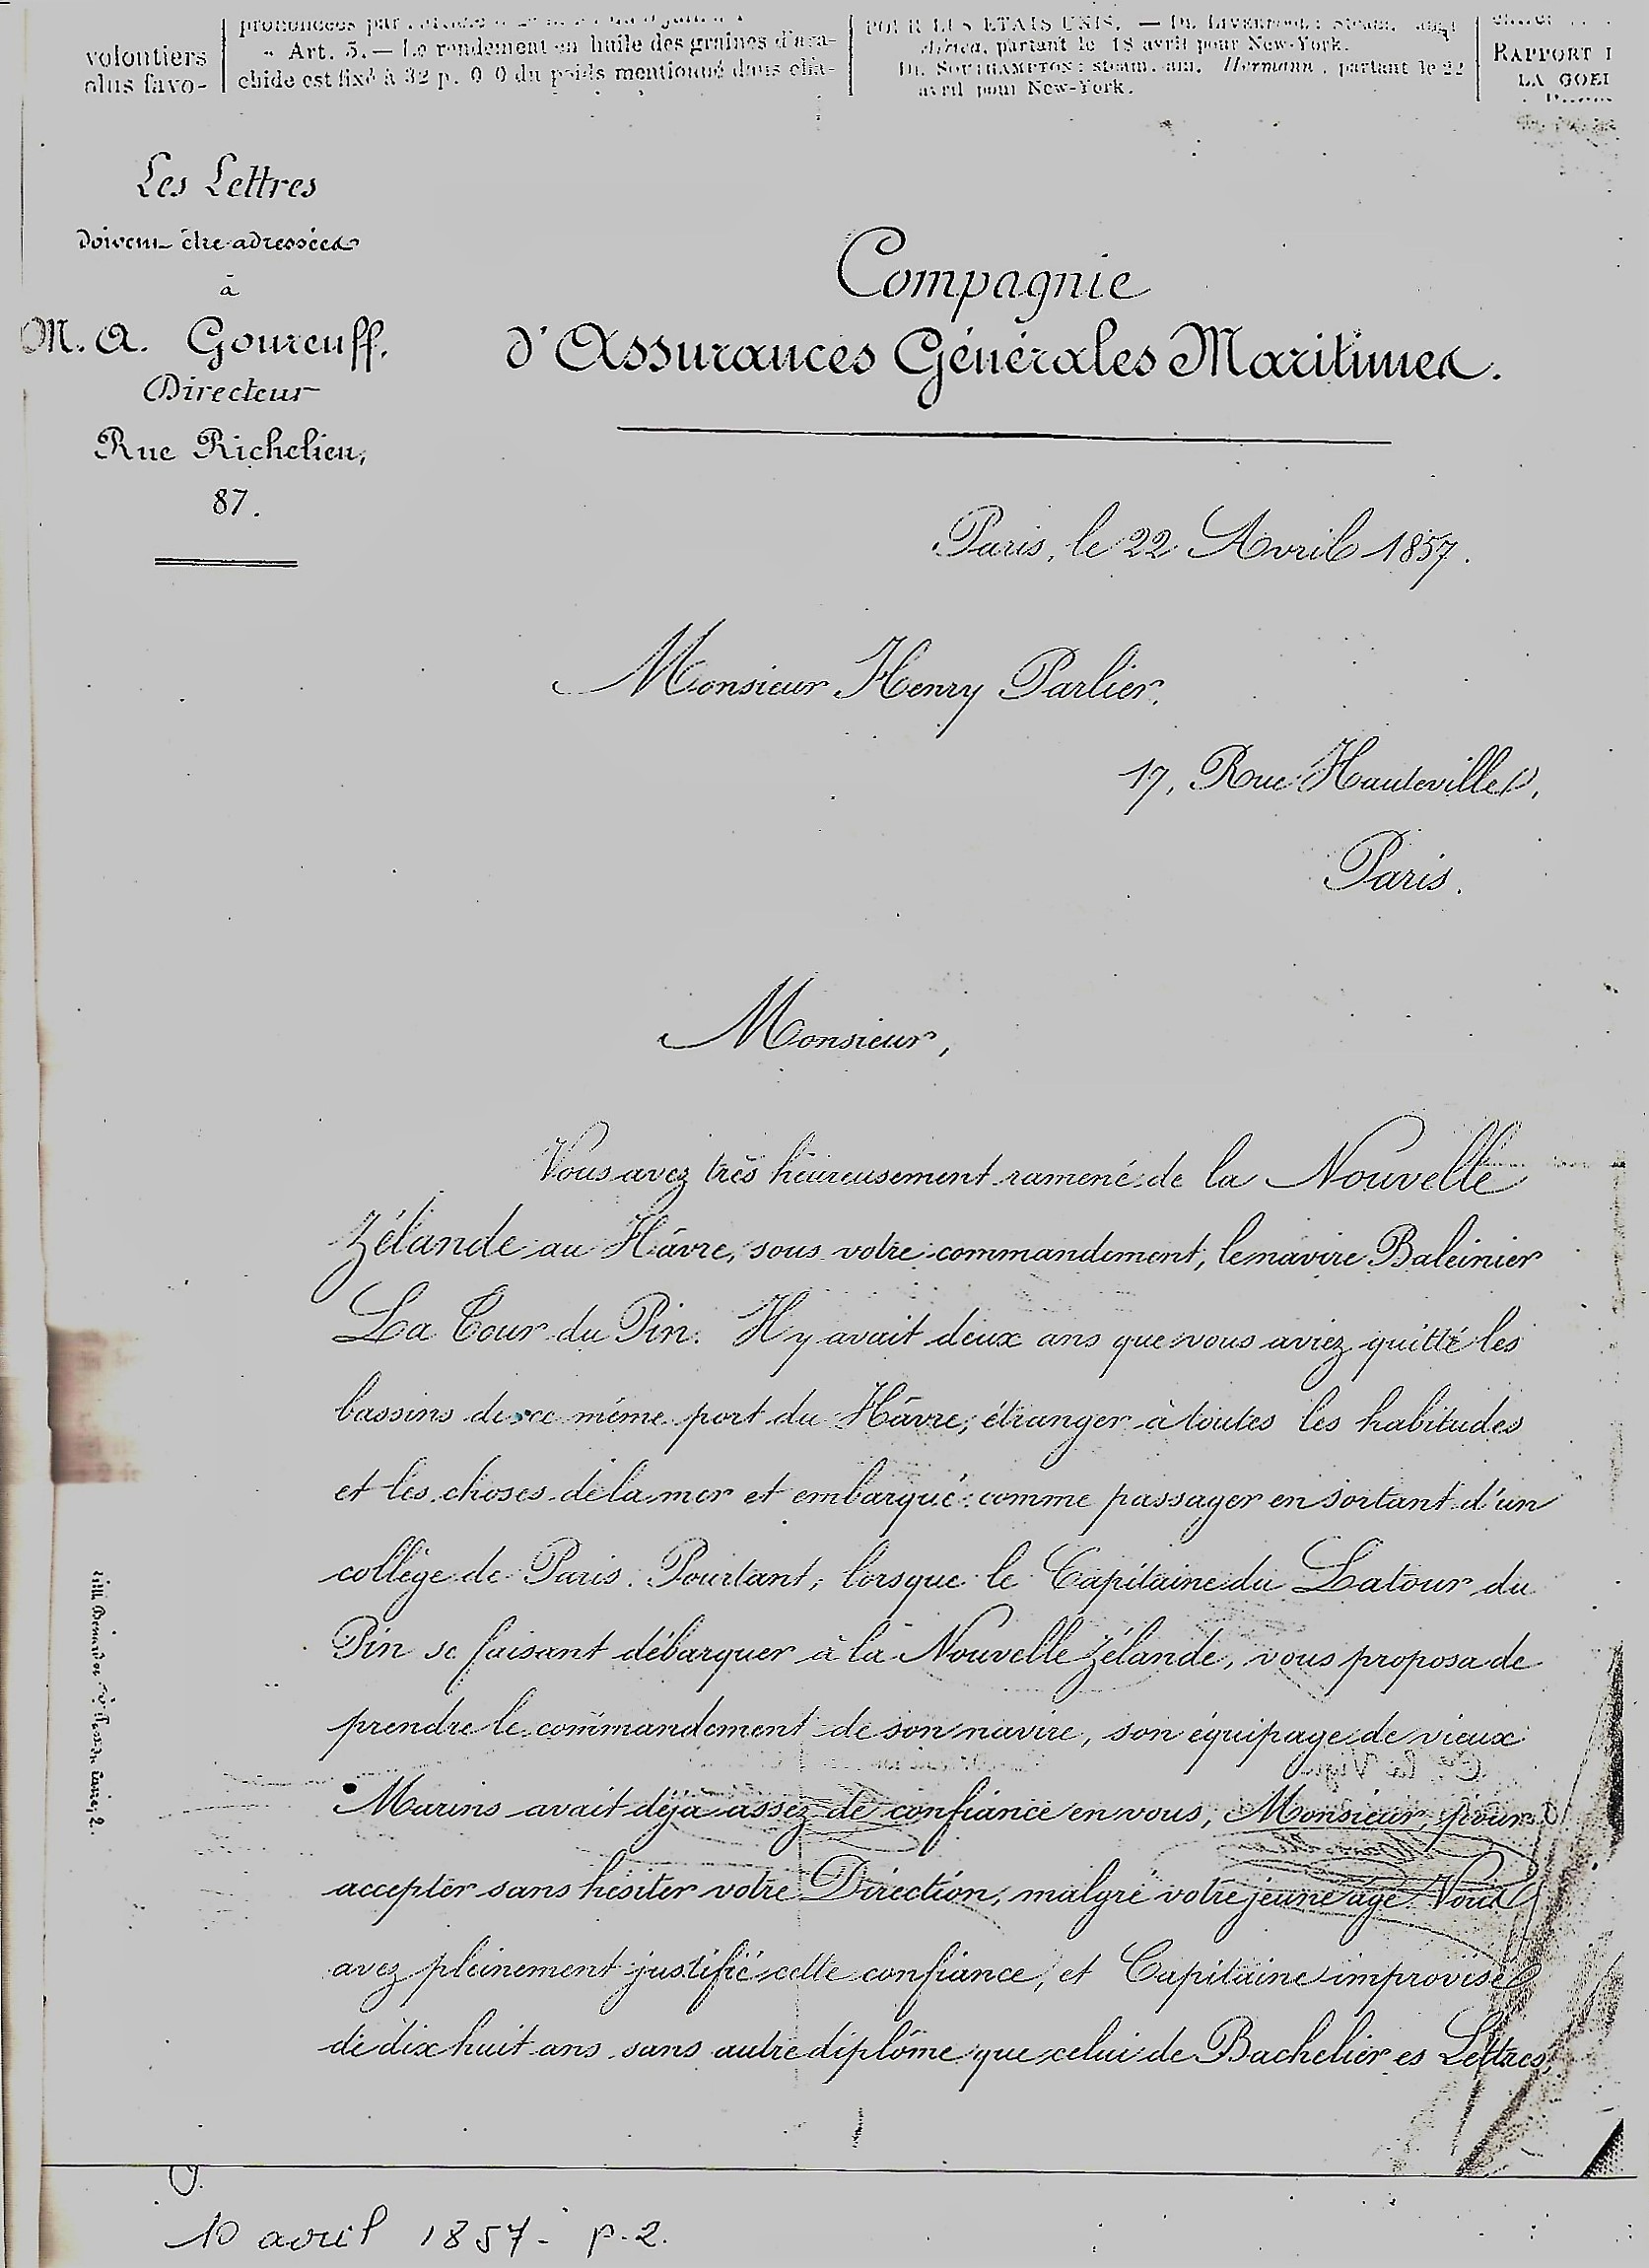 volontiers
plus favo-
prononcées par
« Art. 5. — Le rendement en huile des graines d'ara-
chide est fixé à 32 p. 0 0 du poids mentionné dans
POUR LES ETATS UNIS. — De LIVERPOOL: steam.
Africa, partant le 18 avril pour New-York.
De SOUTHAMPTON: steam. am. Hermann, partant le 22
avril pour New-York.
RAPPORT
LA GOEI
Les Lettres
doivent être adressées
à
M. A. Gourcuff,
Directeur
Rue Richelieu,
87.
Compagnie
d'Assurances Générales Maritimes.
Paris, le 22 Avril 1857.
Monsieur Henry Parlier,
17, Rue Hauteville,
Paris.
Monsieur,
Vous avez très heureusement ramené de la Nouvelle
Zélande au Hâvre, sous votre commandement, le navire Baleinier
La Tour du Pin. Il y avait deux ans que vous aviez quitté les
bassins de ce même port du Hâvre, étranger à toutes les habitudes
et les choses de la mer et embarqué comme passager en sortant d'un
collège de Paris. Pourtant, lorsque le Capitaine du Latour du
Pin se faisant débarquer à la Nouvelle Zélande, vous proposa de
prendre le commandement de son navire, son équipage de vieux
Marins avait déja assez de confiance en vous, Monsieur, pour
accepter sans hésiter votre Direction, malgré votre jeune âge. Vous
avez pleinement justifié cette confiance, et Capitaine improvisé
de dix huit ans sans autre diplôme que celui de Bachelier es Lettres,
10 avril 1857 - p. 2.